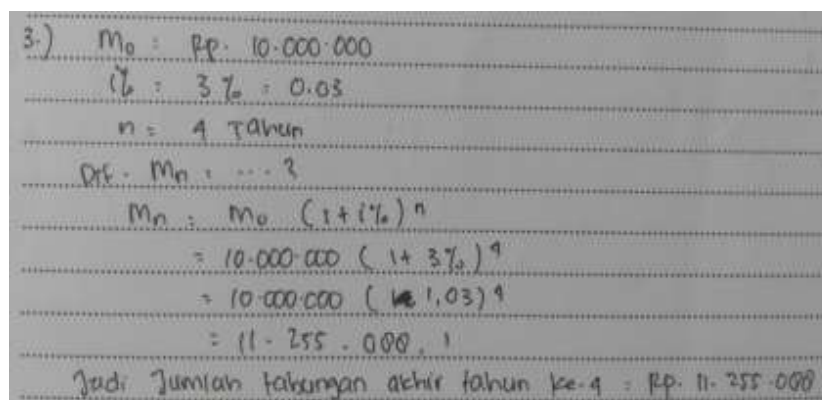 3.) M₀ : Rp. 10.000.000
i% : 3% : 0.03
n : 4 Tahun
Dit. Mn : ....?
Mn : M₀ (1+i%)ⁿ
= 10.000.000 (1+ 3%)⁴
= 10.000.000 (1,03)⁴
= 11.255.088,1
Jadi Jumlah tabungan akhir tahun ke-4 : Rp. 11.255.088